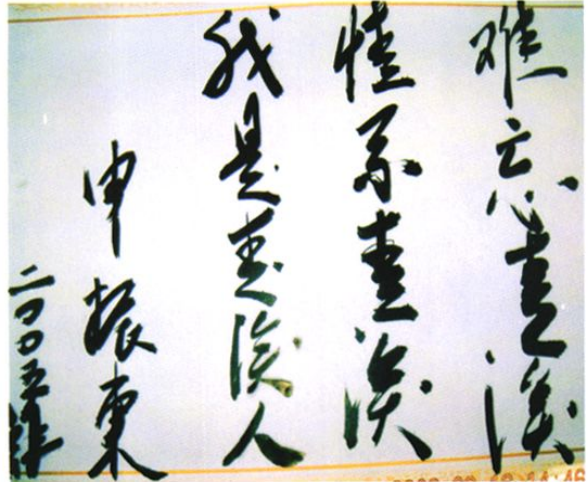 难忘青溪
情系青溪
我是青溪人
申振东
二〇〇五年